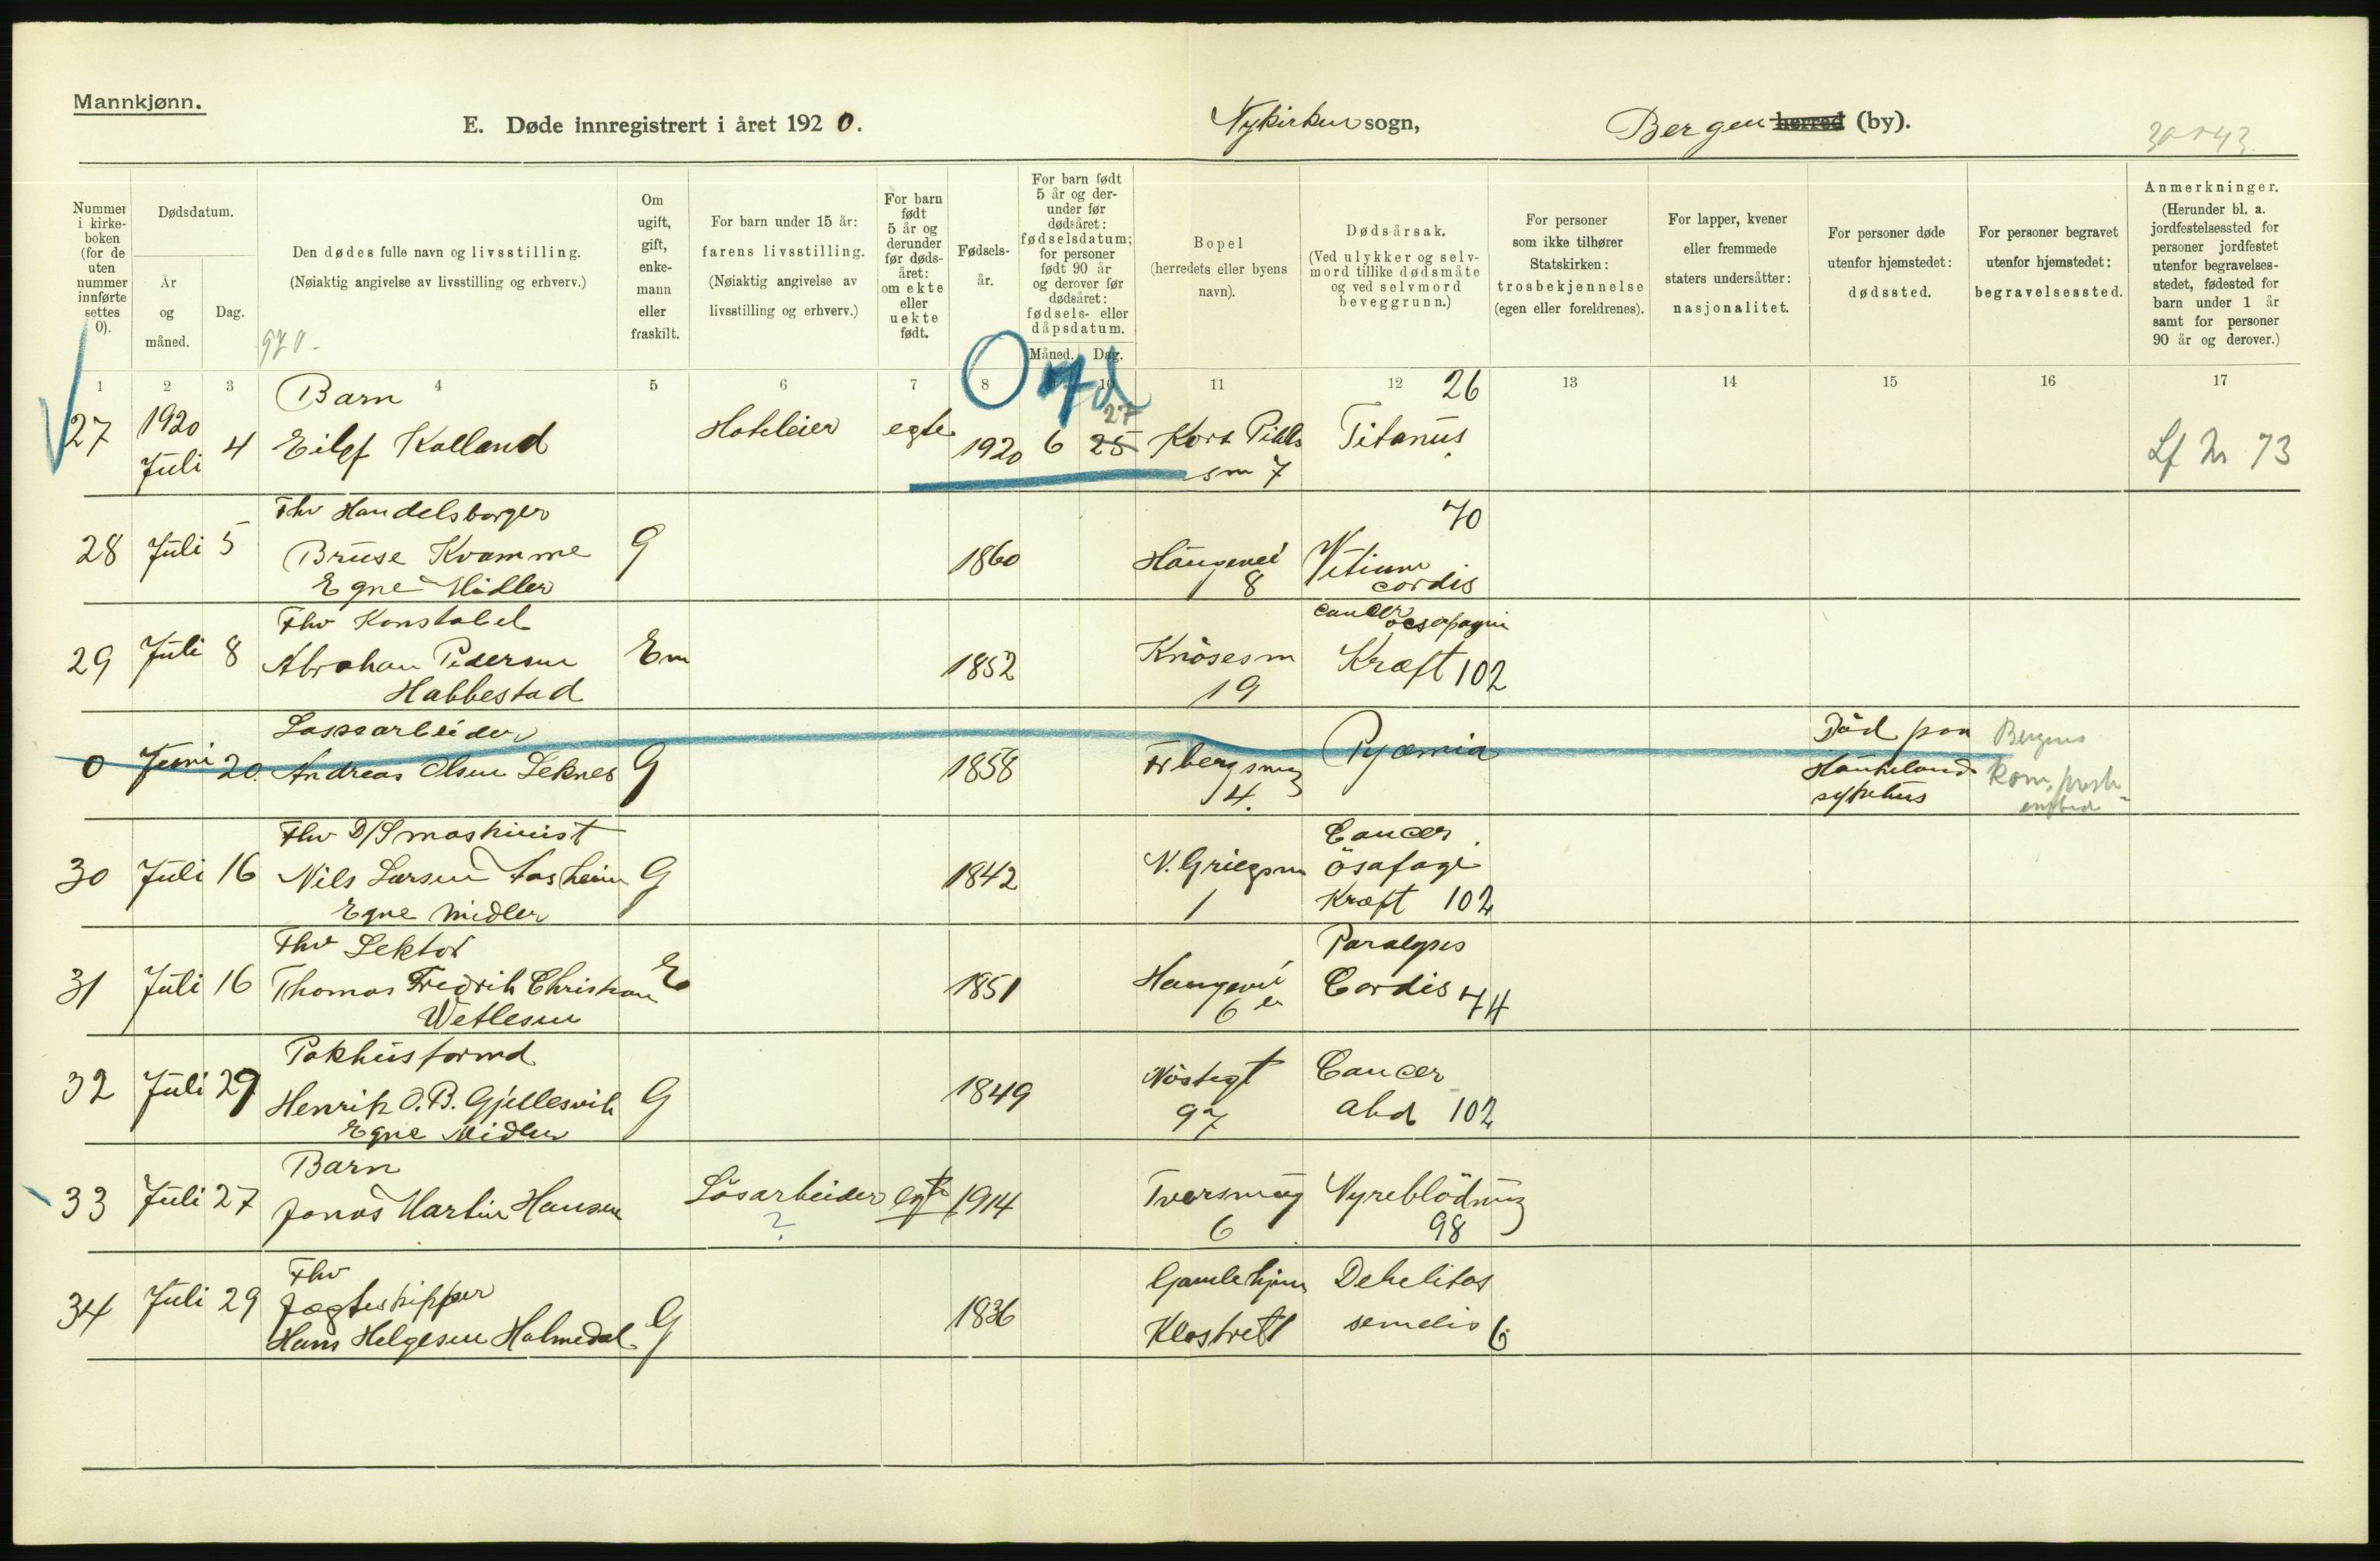 Mannkjønn.
E. Døde innregistrert i året 1920.
Nykirken sogn,
Bergen herred (by).
Nummer i kirkeboken (for de uten nummer innførte settes 0).
Dødsdatum.
År og måned.
Dag.
Den dødes fulle navn og livsstilling.
(Nøiaktig angivelse av livsstilling og erhverv.)
Om ugift, gift, enkemann eller fraskilt.
For barn under 15 år:
farens livsstilling.
(Nøiaktig angivelse av livsstilling og erhverv.)
For barn født 5 år og derunder før dødsåret: om ekte eller uekte født.
Fødselsår.
For barn født 5 år og derunder før dødsåret: fødselsdatum; for personer født 90 år og derover før dødsåret: fødsels- eller dåpsdatum.
Måned. Dag.
Bopel
(herredets eller byens navn).
Dødsårsak.
(Ved ulykker og selvmord tillike dødsmåte og ved selvmord beveggrunn.)
For personer som ikke tilhører Statskirken: trosbekjennelse (egen eller foreldrenes).
For lapper, kvener eller fremmede staters undersåtter: nasjonalitet.
For personer døde utenfor hjemstedet: dødssted.
For personer begravet utenfor hjemstedet: begravelsessted.
Anmerkninger.
(Herunder bl. a. jordfestelsessted for personer jordfestet utenfor begravelsesstedet, fødested for barn under 1 år samt for personer 90 år og derover.)
970.
1 2 3 4 5 6 7 8 10 11 12 13 14 15 16 17
27 1920 Juli 4 Barn Eilef Kolland Hoteleier egte 1920 6 25 27 Kort Piils sm 7 Titanus 26 Lf Nr 73
28 Juli 5 Fhv Handelsborger Bruse Kvamme Egne Midler G 1860 Haugevei 8 Vitium cordis 70
29 Juli 8 Fhv Konstabel Abraham Pedersen Habbestad Em 1852 Knøsesm 19 cancer oesopagui Kræft 102
0 Juni 20. Lossearbeider Andreas Olsen Leknes G 1858 4. Pyæmia Död paa Haukeland sykehus Bergens
30 Juli 16 Fhv D/S maskinist Nils Larsen Egne Midler G 1842 N. Griegsm 1 Cancer ösafagi Kræft 102
31 Juli 16 Fhv Lektor Thomas Fredrik Christian Wetlesen E 1851 Haugevei 6 Paralyses Cordis 74
32 Juli 29 Pakhusformd Henrik O. B. Gjellesvik Egne Midler G 1849 Nöstegt 97 Cancer abd 102
33 Juli 27 Barn Jonas Martin Hansen Lösarbeider ? egte 1914 Tversmug 6 Nyreblödning 98
34 Juli 29 Fhv Jægteskipper Hans Helgesen Holmedal G 1836 Gamlehjem Klostret 1 Debelitas senelis 6